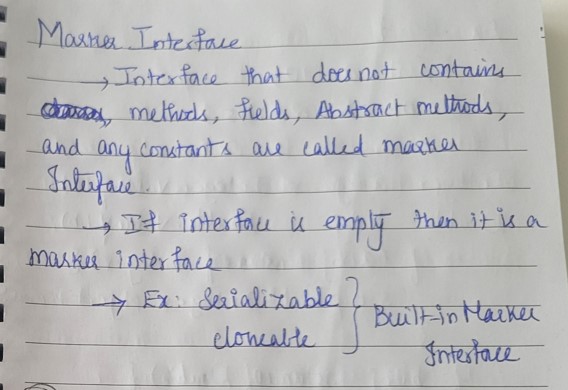 Marker Interface
→ Interface that does not contains
methods, fields, Abstract methods,
and any constants are called marker
Interface.
→ If interface is empty then it is a
marker interface
→ Ex: Serializable } Built-in Marker
cloneable Interface